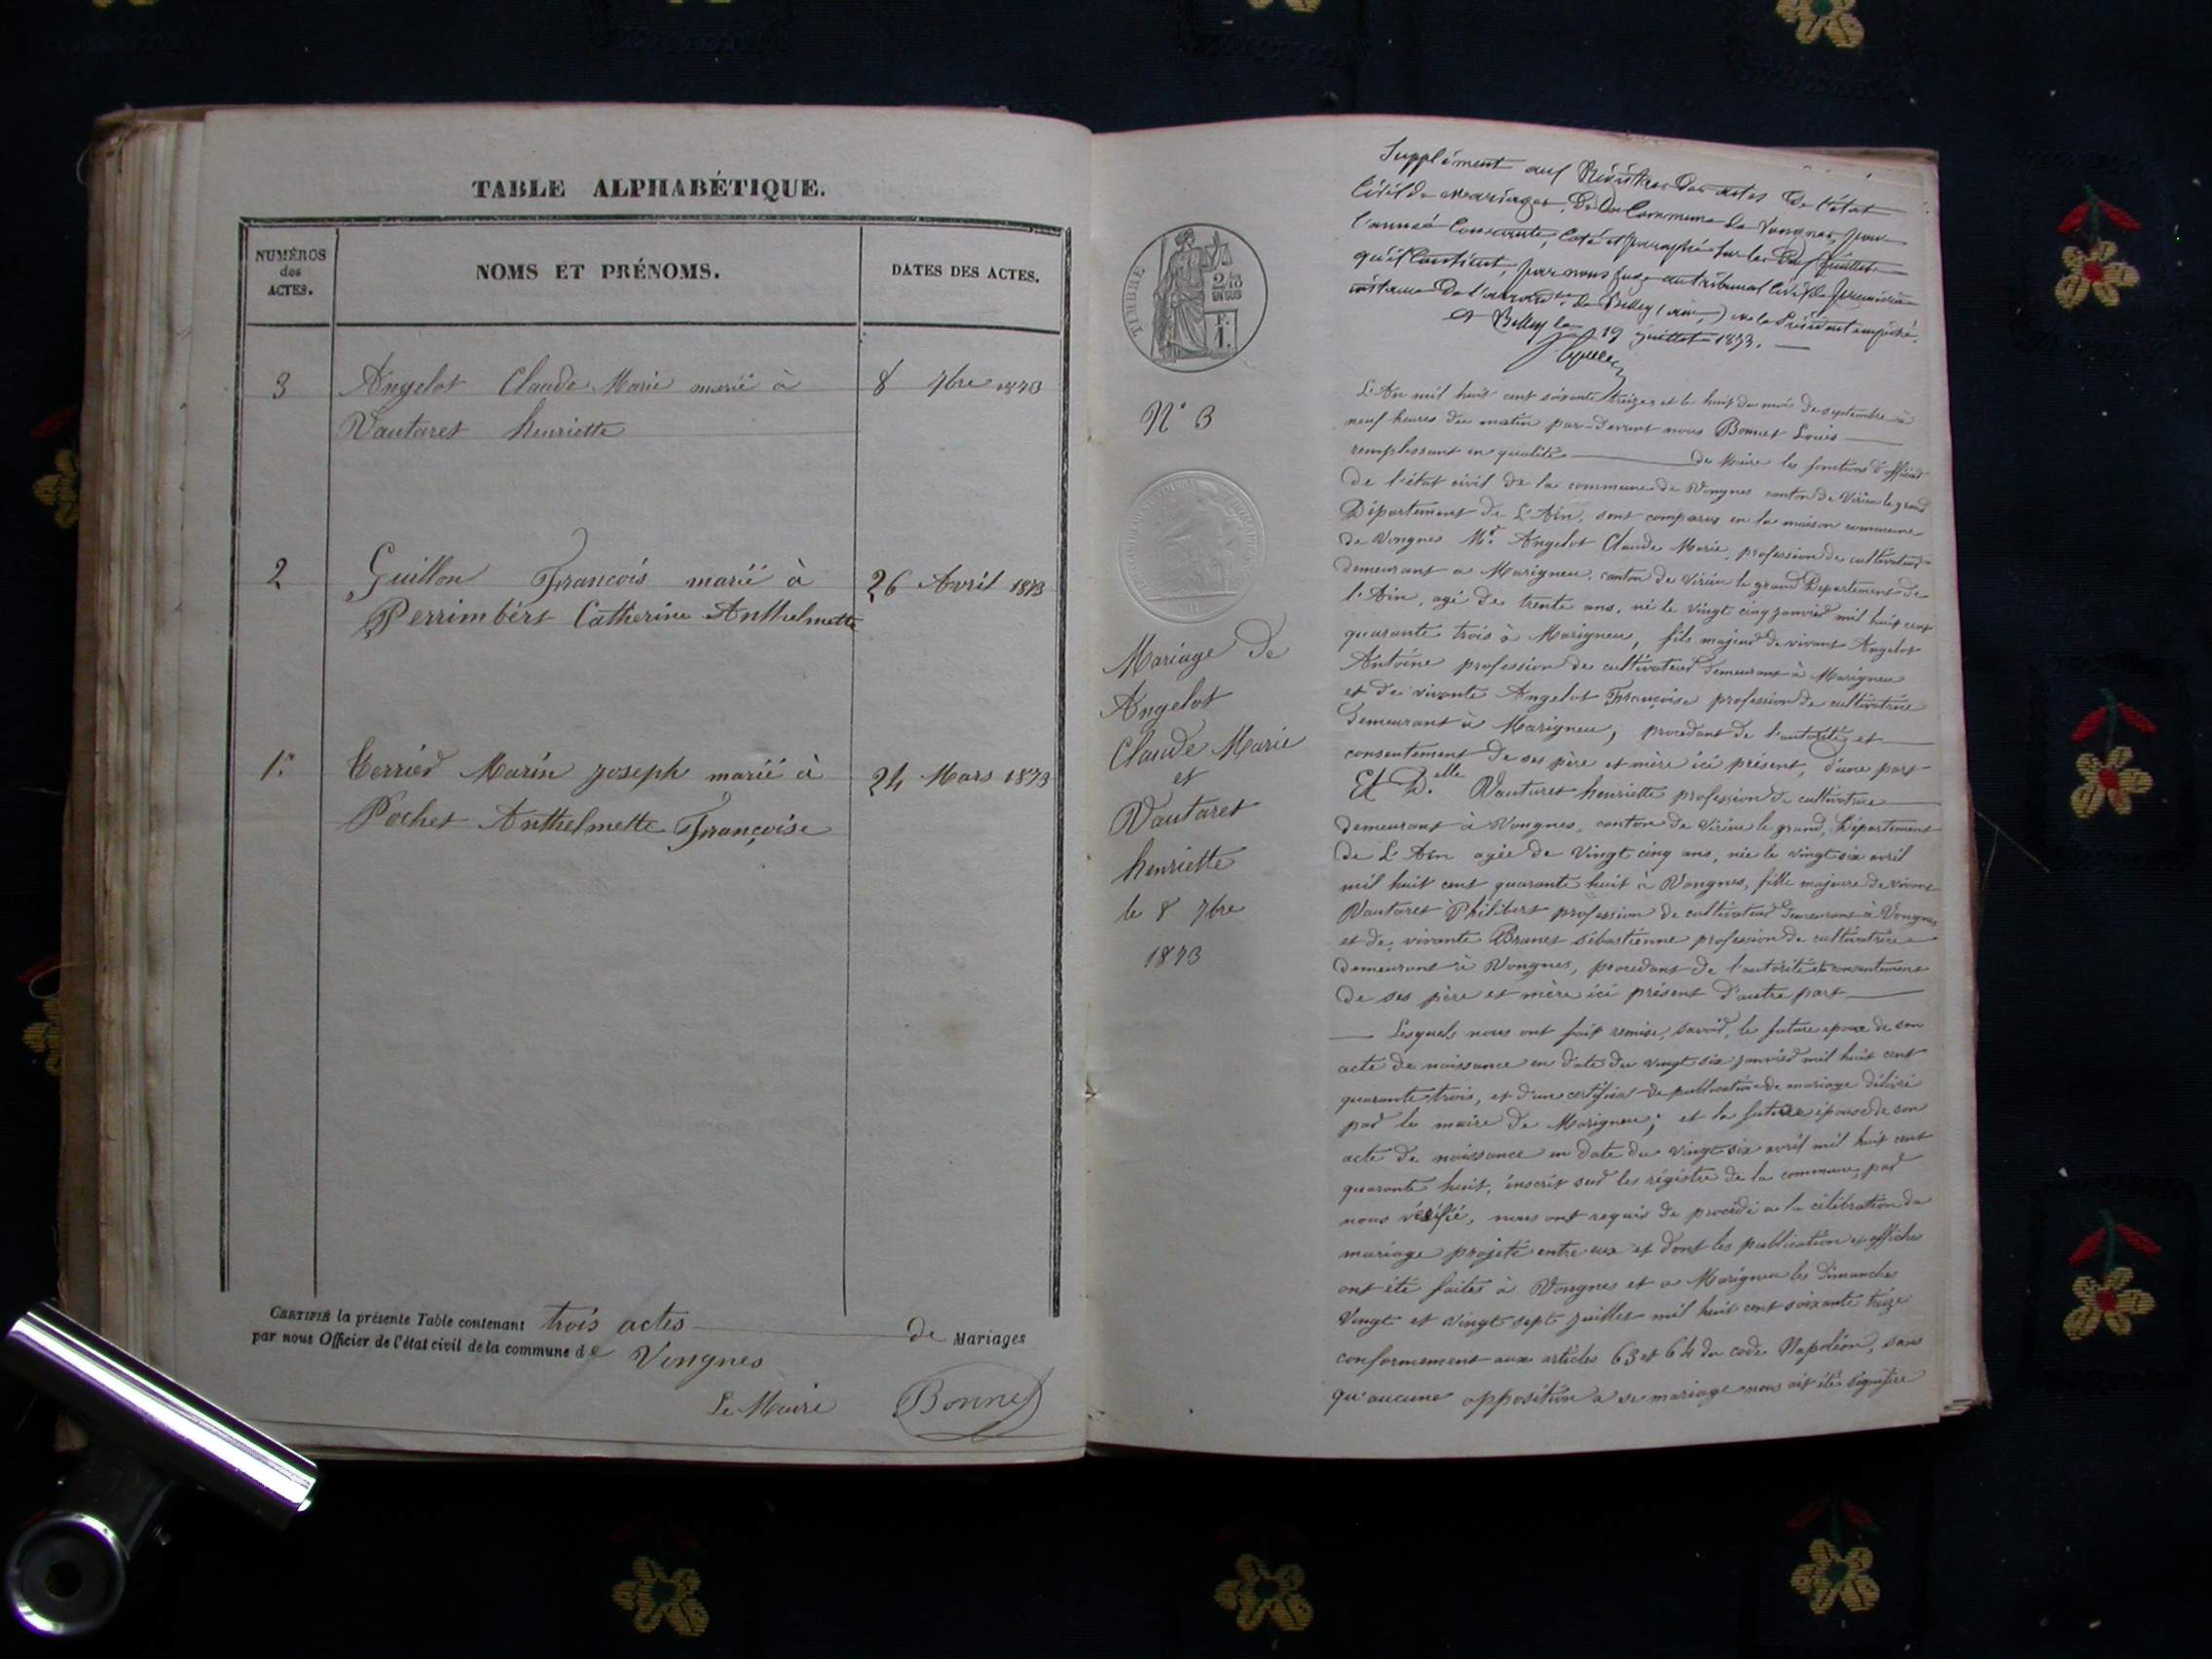 TABLE ALPHABÉTIQUE.
NUMÉROS
des
ACTES.
NOMS ET PRÉNOMS.
DATES DES ACTES.
3 Angelot Claude Marie marié à 8 7bre 1873
Vautaret henriette
2 Guillon François marié à 26 Avril 1873
Perrimbert Catherine Anthelmette
1er Terrier Marin joseph marié à 24 Mars 1873
Pochet Anthelmette Françoise
CERTIFIÉ la présente Table contenant trois actes de Mariages
par nous Officier de l'état civil de la commune de Vongnes
Le Maire Bonnet
Supplément aux Régistres des actes de l'état
Civil de Mariages, de la Commune de Vongnes, pour
l'année Courante, Coté et paraphé sur les feuillets
qu'il Contient, par nous Juge au tribunal Civil de première
instance de l'arrondt de Belley (ain,) le Président empêché.
A Belley le 19 juillet 1873.
TIMBRE
2/10
EN SUS
F.
1.
N° 3
Mariage de
Angelot
Claude Marie
et
Vautaret
henriette
le 8 7bre
1873
L'An mil huit cent soixante treize et le huit du mois de septembre à
neuf heures du matin par-devant nous Bonnet Louis
remplissant en qualité de Maire les fonctions d'officier
de l'état civil de la commune de Vongnes canton de Virieu le grand
Département de L'Ain, sont comparus en la maison commune
de Vongnes Mr. Angelot Claude Marie, profession de cultivateur
demeurant a Marigneu, canton de Virieu le grand Departement de
l'Ain, agé de trente ans, né le vingt cinq janvier mil huit cent
quarante trois à Marigneu, fils majeur de vivant Angelot
Antoine profession de cultivateur demeurant à Marigneu
et de vivante Angelot Françoise profession de cultivatrice
demeurant à Marigneu, procédant de l'autorité et
consentement de ses père et mère ici présent, d'une part
Et D.elle Vautaret henriette profession de cultivatrice
demeurant à Vongnes, canton de Virieu le grand, Département
de L'Ain agée de vingt cinq ans, née le vingt six avril
mil huit cent quarante huit à Vongnes, fille majeure de vivant
Vautaret Philibert profession de cultivateur demeurant à Vongnes
et de vivante Brunet sébastienne profession de cultivatrice
demeurant à Vongnes, procédant de l'autorité et consentement
de ses père et mère ici présent d'autre part
Lesquels nous ont fait remise, savoir, le future epoux de son
acte de naissance en date du vingt six janvier mil huit cent
quarante trois, et d'un certificat de publication de mariage délivré
par le maire de Marigneu; et la future épouse de son
acte de naissance en date du vingt six avril mil huit cent
quarante huit, inscrit sur les régistre de la commune, par
nous vérifié, nous ont requis de procédé a la célébration du
mariage projeté entre eux et dont les publication et affiches
ont été faites à Vongnes et a Marigneu les dimanches
vingt et vingt sept juillet mil huit cent soixante treize
conformement aux articles 63 et 64 du code Napoléon, sans
qu'aucune opposition a se mariage nous ait été signifiée